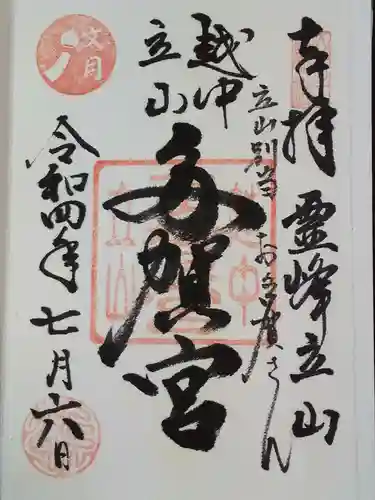 奉拝 霊峰立山
立山別当 お多賀さん
越中
立山
多賀宮
令和四年七月六日
文月